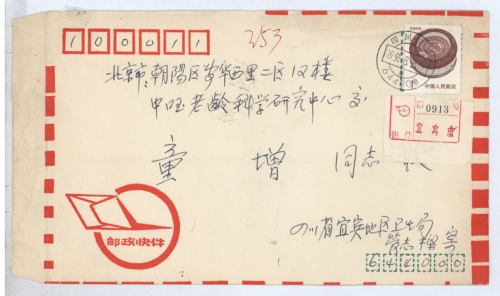 100011
353
北京市朝陽区安华西里二区12楼
中国老龄科学研究中心 交
童 增 同志 收
四川省宜宾地区卫生局
寄
644000
邮政快件
四川
中国人民邮政
0913
快件
宜宾